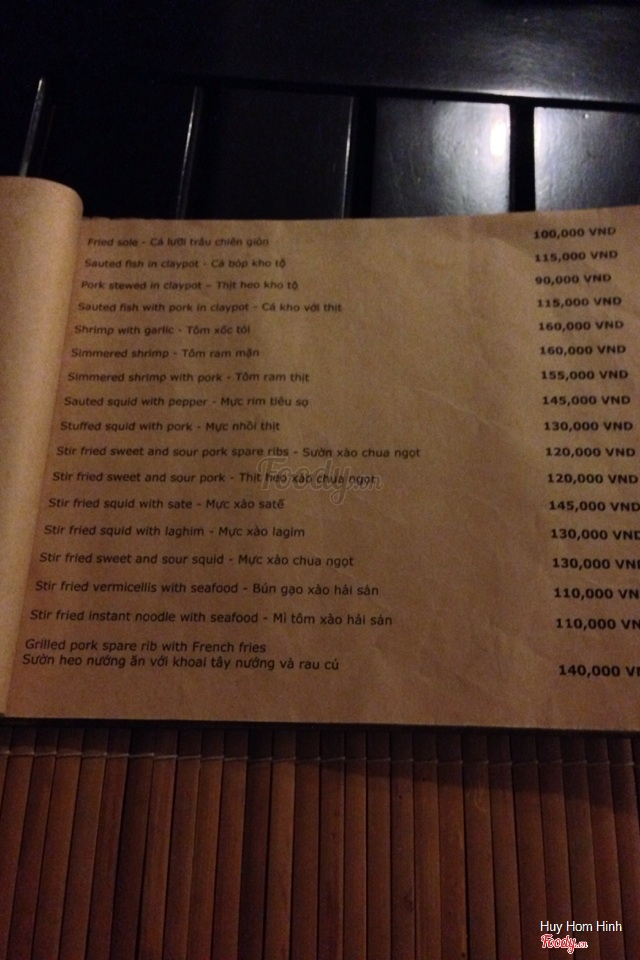 Fried sole - Cá lưỡi trâu chiên giòn 100,000 VND
Sauted fish in claypot - Cá bóp kho tộ 115,000 VND
Pork stewed in claypot – Thịt heo kho tộ 90,000 VND
Sauted fish with pork in claypot - Cá kho với thịt 115,000 VND
Shrimp with garlic - Tôm xốc tỏi 160,000 VND
Simmered shrimp - Tôm ram mặn 160,000 VND
Simmered shrimp with pork - Tôm ram thịt 155,000 VND
Sauted squid with pepper - Mực rim tiêu sọ 145,000 VND
Stuffed squid with pork - Mực nhồi thịt 130,000 VND
Stir fried sweet and sour pork spare ribs - Sườn xào chua ngọt 120,000 VND
Stir fried sweet and sour pork - Thịt heo xào chua ngọt 120,000 VND
Foody.vn
Stir fried squid with sate - Mực xào satế 145,000 VND
Stir fried squid with laghim - Mực xào lagim 130,000 VND
Stir fried sweet and sour squid - Mực xào chua ngọt 130,000 VND
Stir fried vermicellis with seafood - Bún gạo xào hải sản 110,000 VN
Stir fried instant noodle with seafood - Mì tôm xào hải sản 110,000 VN
Grilled pork spare rib with French fries
Sườn heo nướng ăn với khoai tây nướng và rau củ 140,000 V
Huy Hom Hinh
Foody.vn